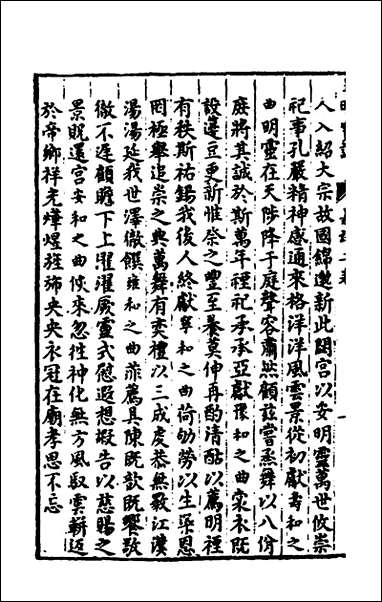 人入紹大宗故國綿邈新此閟宮以安明靈萬世攸崇
祀事孔嚴精神感通來格洋洋風雲景從初獻壽和之
曲明靈在天陟降于庭聲容肅然顧茲嘗烝舞以八佾
庭將其誠於斯萬年禋祀承承亞獻豫和之曲袞衣既
設籩豆更新惟祭之豐至養莫伸再酌清酤以薦明禋
有秩斯祜錫我後人終獻寧和之曲荷劬勞以生恩
罔極舉追崇之典萬舞有奕禮以三成虔恭無斁江漢
湯湯延我世澤徹饌雍和之曲菲薦具陳既歆既饗敬
徹不遲顧瞻下上濯濯厥靈式慰遐想嘏告以慈賜之
景貺還宮安和之曲倏來忽往神化無方風馭雲軿返
於帝鄉祥光燁煌旌旆央央衣冠在廟孝思不忘